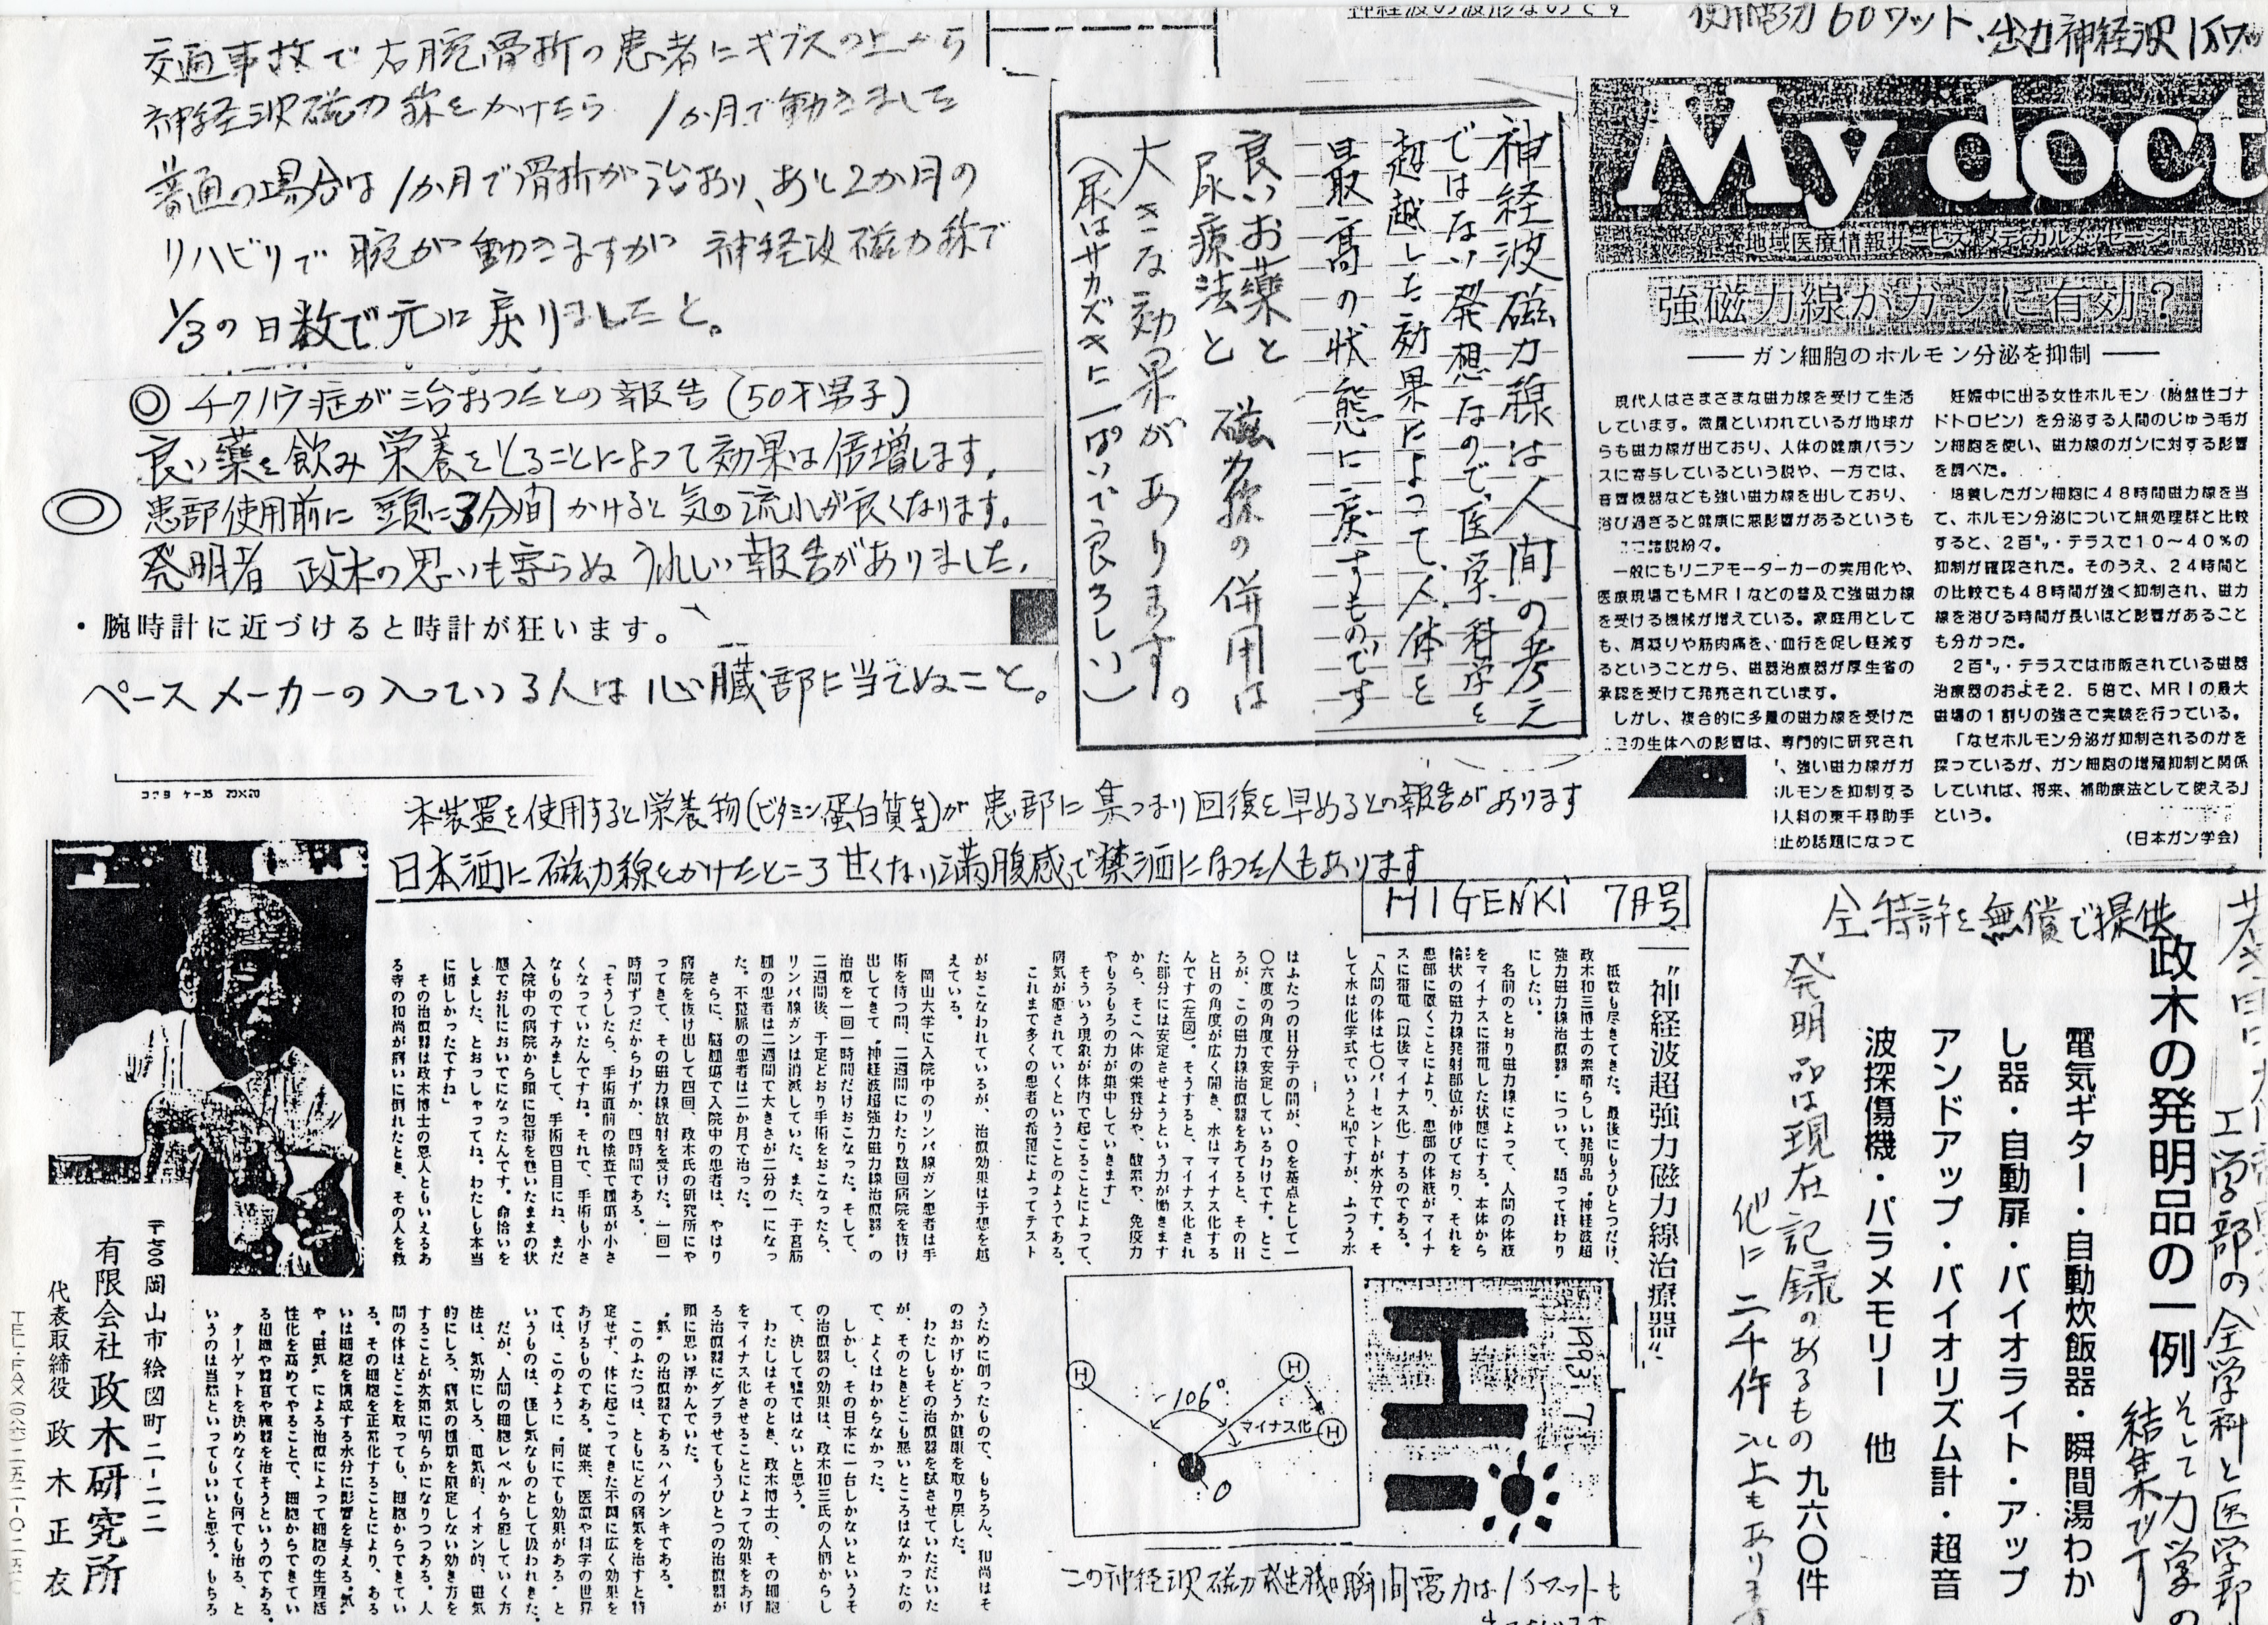 神経波の波形なのです
使用電力60ワット、出力神経波1万ワット
交通事故で右腕骨折の患者にギブスの上から
神経波磁力線をかけたら 1か月で動きました
普通の場合は1か月で骨折が治おり、あと2か月の
リハビリで 腕が動きますが 神経波磁力線で
1/3の日数で元に戻りましたと。
◎チクノウ症が治おったとの報告(50才男子)
良い薬を飲み栄養をとることによって効果は倍増します。
◎患部使用前に 頭に3分間かけると気の流れが良くなります。
発明者 政木の思いも寄らぬうれしい報告がありました。
・腕時計に近づけると時計が狂います。
ペースメーカーの入っている人は心臓部に当てぬこと。
コクヨ ケー35 20×20
神経波磁力線は人間の考え
ではない発想なので、医学、科学を
超越した効果によって、人体を
最高の状態に戻すものです
良いお薬と
尿療法と 磁力線の併用は
大きな効果があります。
(尿はサカズキに一ぱいで良ろしい)
My doct
地域医療情報サービス メディカルメイセージ誌
強磁力線がガンに有効?
── ガン細胞のホルモン分泌を抑制 ──
現代人はさまざまな磁力線を受けて生活
しています。微量といわれているが地球か
らも磁力線が出ており、人体の健康バラン
スに寄与しているという説や、一方では、
音響機器なども強い磁力線を出しており、
浴び過ぎると健康に悪影響があるというも
諸説紛々。
一般にもリニアモーターカーの実用化や、
医療現場でもMRIなどの普及で強磁力線
を受ける機械が増えている。家庭用として
も、肩凝りや筋肉痛を、血行を促し軽減す
るということから、磁器治療器が厚生省の
承認を受けて発売されています。
しかし、複合的に多量の磁力線を受けた
の生体への影響は、専門的に研究され
、強い磁力線がガ
ルモンを抑制する
人科の東千尋助手
止め話題になって
妊娠中に出る女性ホルモン(胎盤性ゴナ
ドトロピン)を分泌する人間のじゅう毛ガ
ン細胞を使い、磁力線のガンに対する影響
を調べた。
培養したガン細胞に48時間磁力線を当
て、ホルモン分泌について無処理群と比較
すると、2百㍉・テラスで10〜40%の
抑制が確認された。そのうえ、24時間と
の比較でも48時間が強く抑制され、磁力
線を浴びる時間が長いほど影響があること
も分かった。
2百㍉・テラスでは市販されている磁器
治療器のおよそ2.5倍で、MRIの最大
磁場の1割りの強さで実験を行っている。
「なぜホルモン分泌が抑制されるのかを
探っているが、ガン細胞の増殖抑制と関係
していれば、将来、補助療法として使える」
という。
(日本ガン学会)
本装置を使用すると栄養物(ビタミン蛋白質等)が 患部に集つまり回復を早めるとの報告があります
日本酒に磁力線をかけたところ甘くなり満腹感で禁酒になった人もあります
HIGENKI 7月号
〝神経波超強力磁力線治療器〟
紙数も尽きてきた。最後にもうひとつだけ、
政木和三博士の素晴らしい発明品〝神経波超
強力磁力線治療器〟について、語って終わり
にしたい。
名前のとおり磁力線によって、人間の体液
をマイナスに帯電した状態にする。本体から
輪状の磁力線発射部位が伸びており、それを
患部に置くことにより、患部の体液がマイナ
スに帯電(以後マイナス化)するのである。
「人間の体は七〇パーセントが水分です。そ
して水は化学式でいうとH₂Oですが、ふつう水
はふたつのH分子の間が、Oを基点として一
〇六度の角度で安定しているわけです。とこ
ろが、この磁力線治療器をあてると、そのH
とHの角度が広く開き、水はマイナス化する
んです(左図)。そうすると、マイナス化され
た部分には安定させようという力が働きます
から、そこへ体の栄養分や、酸素や、免疫力
やもろもろの力が集中していきます」
そういう現象が体内で起こることによって、
病気が癒されていくということのようである。
これまで多くの患者の希望によってテスト
がおこなわれているが、治療効果は予想を超
えている。
岡山大学に入院中のリンパ線ガン患者は手
術を待つ間、二週間にわたり数回病院を抜け
出してきて〝神経波超強力磁力線治療器〟の
治療を一回一時間だけおこなった。そして、
二週間後、予定どおり手術をおこなったら、
リンパ線ガンは消滅していた。また、子宮筋
腫の患者は二週間で大きさが二分の一になっ
た。不整脈の患者は二か月で治った。
さらに、脳腫瘍で入院中の患者は、やはり
病院を抜け出して四回、政木氏の研究所にや
ってきて、その磁力線放射を受けた。一回一
時間ずつだからわずか、四時間である。
「そうしたら、手術直前の検査で腫瘍が小さ
くなっていたんですね。それで、手術も小さ
なものですみまして、手術四日目にね、まだ
入院中の病院から頭に包帯を巻いたままの状
態でお礼においでになったんです。命拾いを
しました、とおっしゃってね。わたしも本当
に嬉しかったですね」
その治療器は政木博士の恩人ともいえるあ
る寺の和尚が病いに倒れたとき、その人を救
うために創ったもので、もちろん、和尚はそ
のおかげかどうか健康を取り戻した。
わたしもその治療器を試させていただいた
が、そのときどこも悪いところはなかったの
で、よくはわからなかった。
しかし、その日本に一台しかないというそ
の治療器の効果は、政木和三氏の人柄からし
て、決して嘘ではないと思う。
わたしはそのとき、政木博士の、その細胞
をマイナス化させることによって効果をあげ
る治療器にダブらせてもうひとつの治療器が
頭に思い浮かんでいた。
〝氣〟の治療器であるハイゲンキである。
このふたつは、ともにどの病気を治すと特
定せず、体に起こってきた不調に広く効果を
あげるものである。従来、医療や科学の世界
では、このように〝何にでも効果がある〟と
いうものは、怪し気なものとして扱われきた。
だが、人間の細胞レベルから癒していく方
法は、気功にしろ、電気的、イオン的、磁気
的にしろ、病気の種類を限定しない効き方を
することが次第に明らかになりつつある。人
間の体はどこを取っても、細胞からできてい
る。その細胞を正常化することにより、ある
いは細胞を構成する水分に影響を与える〝気〟
や〝磁気〟による治療によって細胞の生理活
性化を高めてやることで、細胞からできてい
る組織や器官や臓器を治そうというのである。
ターゲットを決めなくても何でも治る、と
いうのは当然といってもいいと思う。もちろ
H
106°
H
マイナス化
H
O
1993.7
この神経波磁力発生機の瞬間電力は1万ワットも
〒700 岡山市絵図町二-二二
有限会社 政木研究所
代表取締役 政木正衣
全特許を無償で提供
政木の発明品の一例
電気ギター・自動炊飯器・瞬間湯わか
し器・自動扉・バイオライト・アップ
アンドアップ・バイオリズム計・超音
波探傷機・パラメモリー 他
発明品は現在記録のあるもの九六〇件
他に二千件以上もあります
工学部の全学科と医学部
そして力学の
結集です